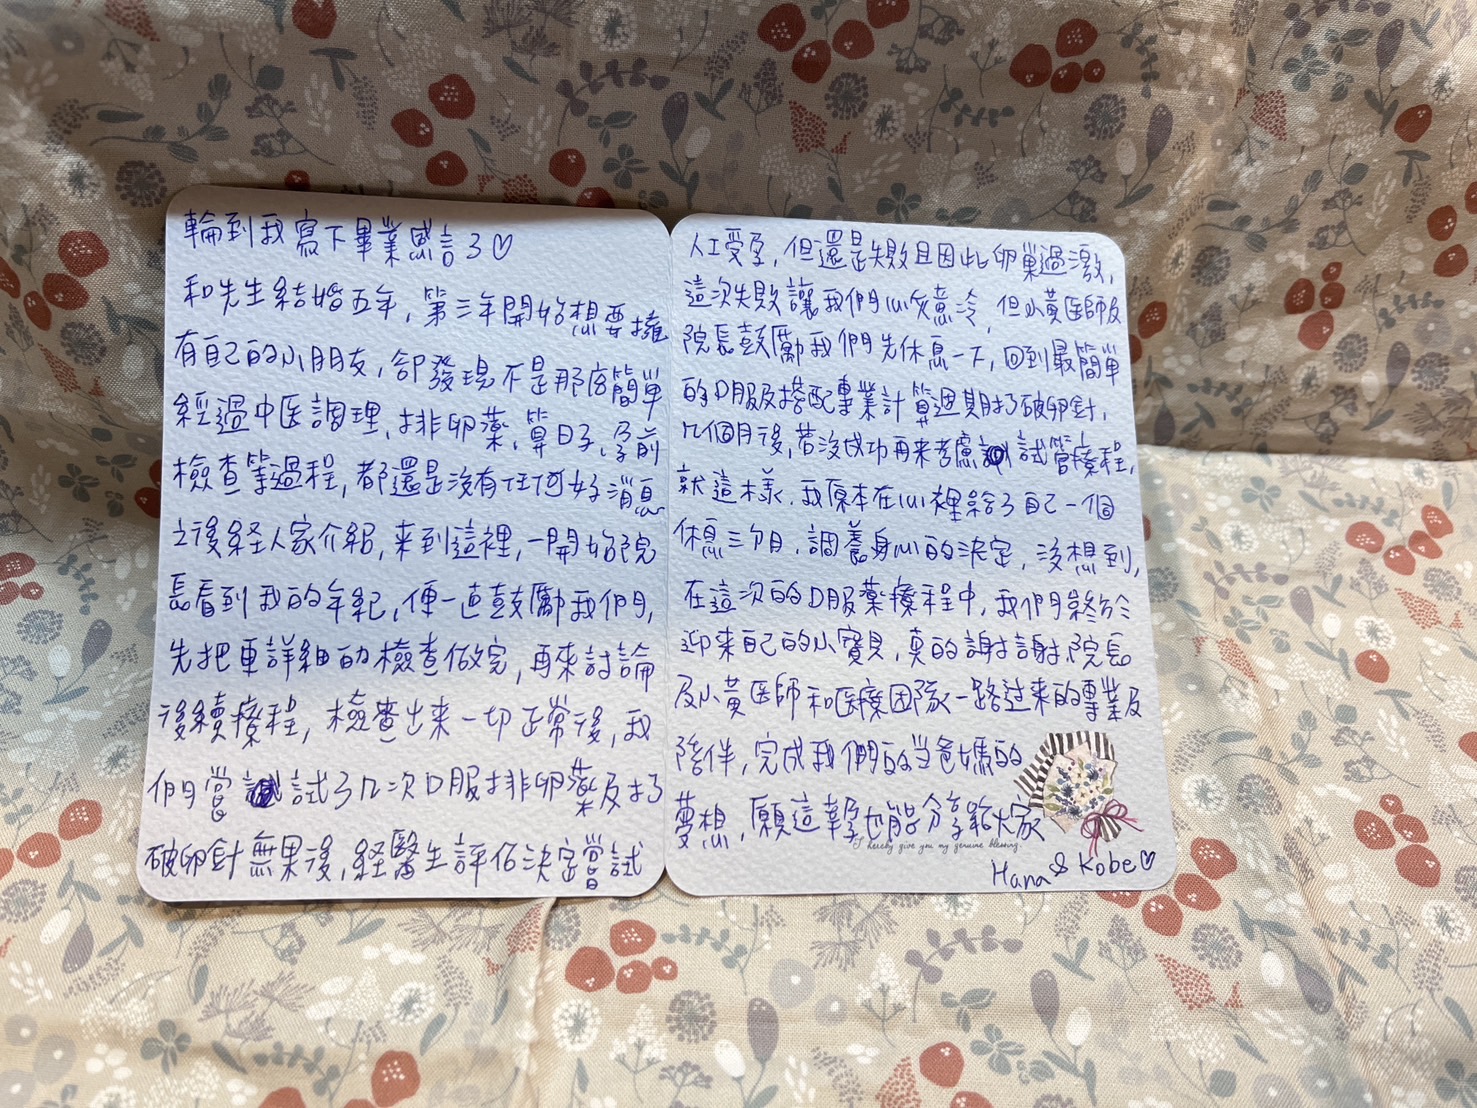 輪到我寫下畢業感言了♡
和先生結婚五年，第三年開始想要擁
有自己的小朋友，卻發現不是那麼簡單
經過中医調理，排卵藥，算日子，孕前
檢查等過程，都還是沒有任何好消息
之後経人家介紹，來到這裡，一開始院
長看到我的年紀，便一直鼓勵我們，
先把更詳細的檢查做完，再來討論
後續療程，檢查出來一切正常後，我
們嘗試了几次口服排卵藥及打了
破卵針無果後，経醫生評估決定嘗試
人工受孕，但還是失敗且因此卵巢過激，
這次失敗讓我們心灰意冷，但小黃医師及
院長鼓勵我們先休息一下，回到最簡單
的口服及搭配專業計算週期打了破卵針，
几個月後，若沒成功再來考慮試管療程，
就這樣，我原本在心裡給了自己一個
休息三个月，調養身心的決定，沒想到，
在這次的口服藥療程中，我們終於
迎來自己的小寶貝，真的謝謝院長
及小黃医師和医療团隊一路过來的專業及
陪伴，完成我們的当爸媽的
夢想，願這孕也能分享給大家
I hereby give you my genuine blessing.
Hana & Kobe♡